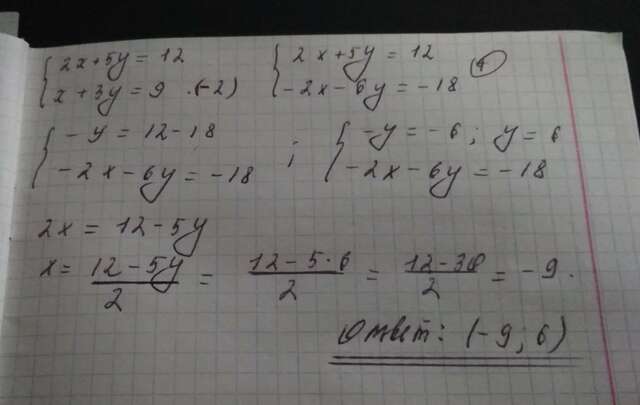 { 2x+5y = 12 { 2x+5y = 12 4
{ x+3y = 9 ·(-2) { -2x-6y = -18
{ -y = 12-18 ; { -y = -6 ; y = 6
{ -2x-6y = -18 { -2x-6y = -18
2x = 12-5y
x = (12-5y)/2 = (12-5·6)/2 = (12-30)/2 = -9.
Ответ: (-9; 6)